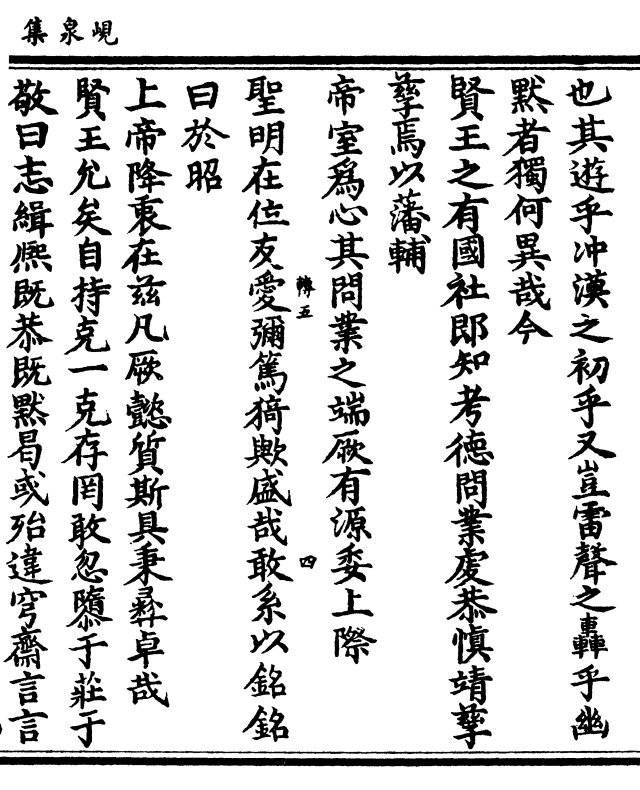 峴泉集
也其遊乎沖漠之初乎又豈雷聲之轟乎幽
默者獨何異哉今
賢王之有國社郎知考德問業處恭慎靖孳
孳焉以藩輔
帝室爲心其問業之端厥有源委上際
轉五
四
聖明在位友愛彌篤猗歟盛哉敢系以銘銘
曰於昭
上帝降衷在茲凡厥懿質斯具秉彝卓哉
賢王允矣自持克一克存罔敢忽隳于莊于
敬曰志緝熈既恭既默曷或殆違穹齋言言